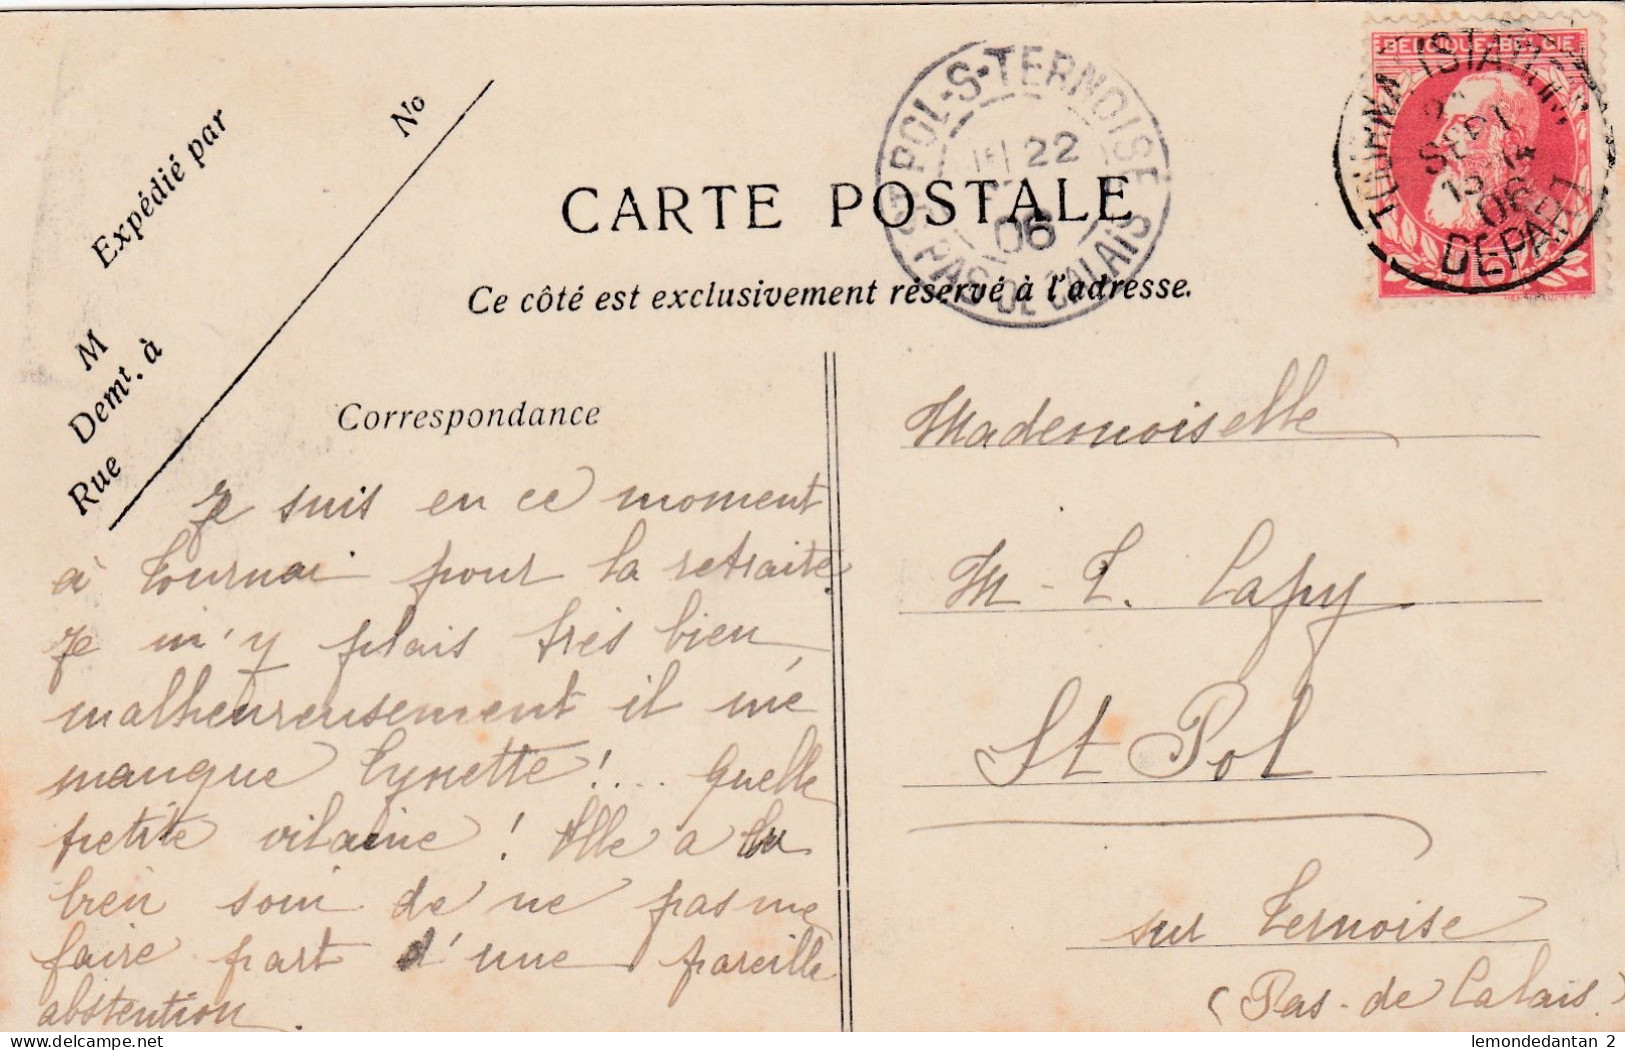 Expédié par
No
M
Demt. à
Rue
CARTE POSTALE
Ce côté est exclusivement réservé à l'adresse.
Correspondance
ST-POL-S-TERNOISE
22
06
PAS DE CALAIS
BELGIQUE-BELGIE
SEPT
06
DEPART
Je suis en ce moment
à Tournai pour la retraite.
Je m'y plais très bien
malheureusement il me
manque Lynette !... Quelle
petite vilaine ! Elle a eu
bien soin de ne pas me
faire part d'une pareille
abstention.
Mademoiselle
M-L. Capy
St Pol
sur Ternoise
(Pas-de Calais)
lemondedantan 2